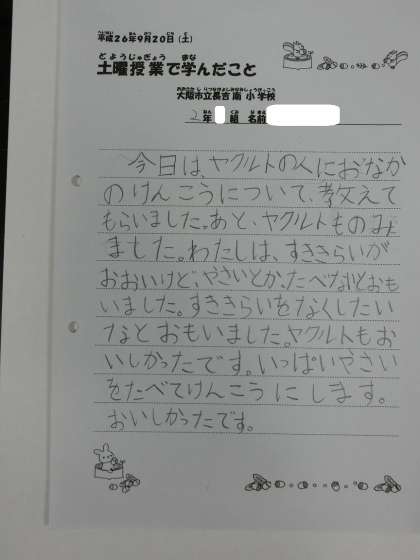 平成26年9月20日(土)
土曜授業で学んだこと
大阪市立長吉南小学校
2年 組 名前
今日は、ヤクルトの人におなか
のけんこうについて、教えて
もらいました。あと、ヤクルトものみ
ました。わたしは、すききらいが
おおいけど、やさいとか、たべないとおも
いました。すききらいをなくしたい
なとおもいました。ヤクルトもお
いしかったです。いっぱいやさい
をたべてけんこうにします。
おいしかったです。